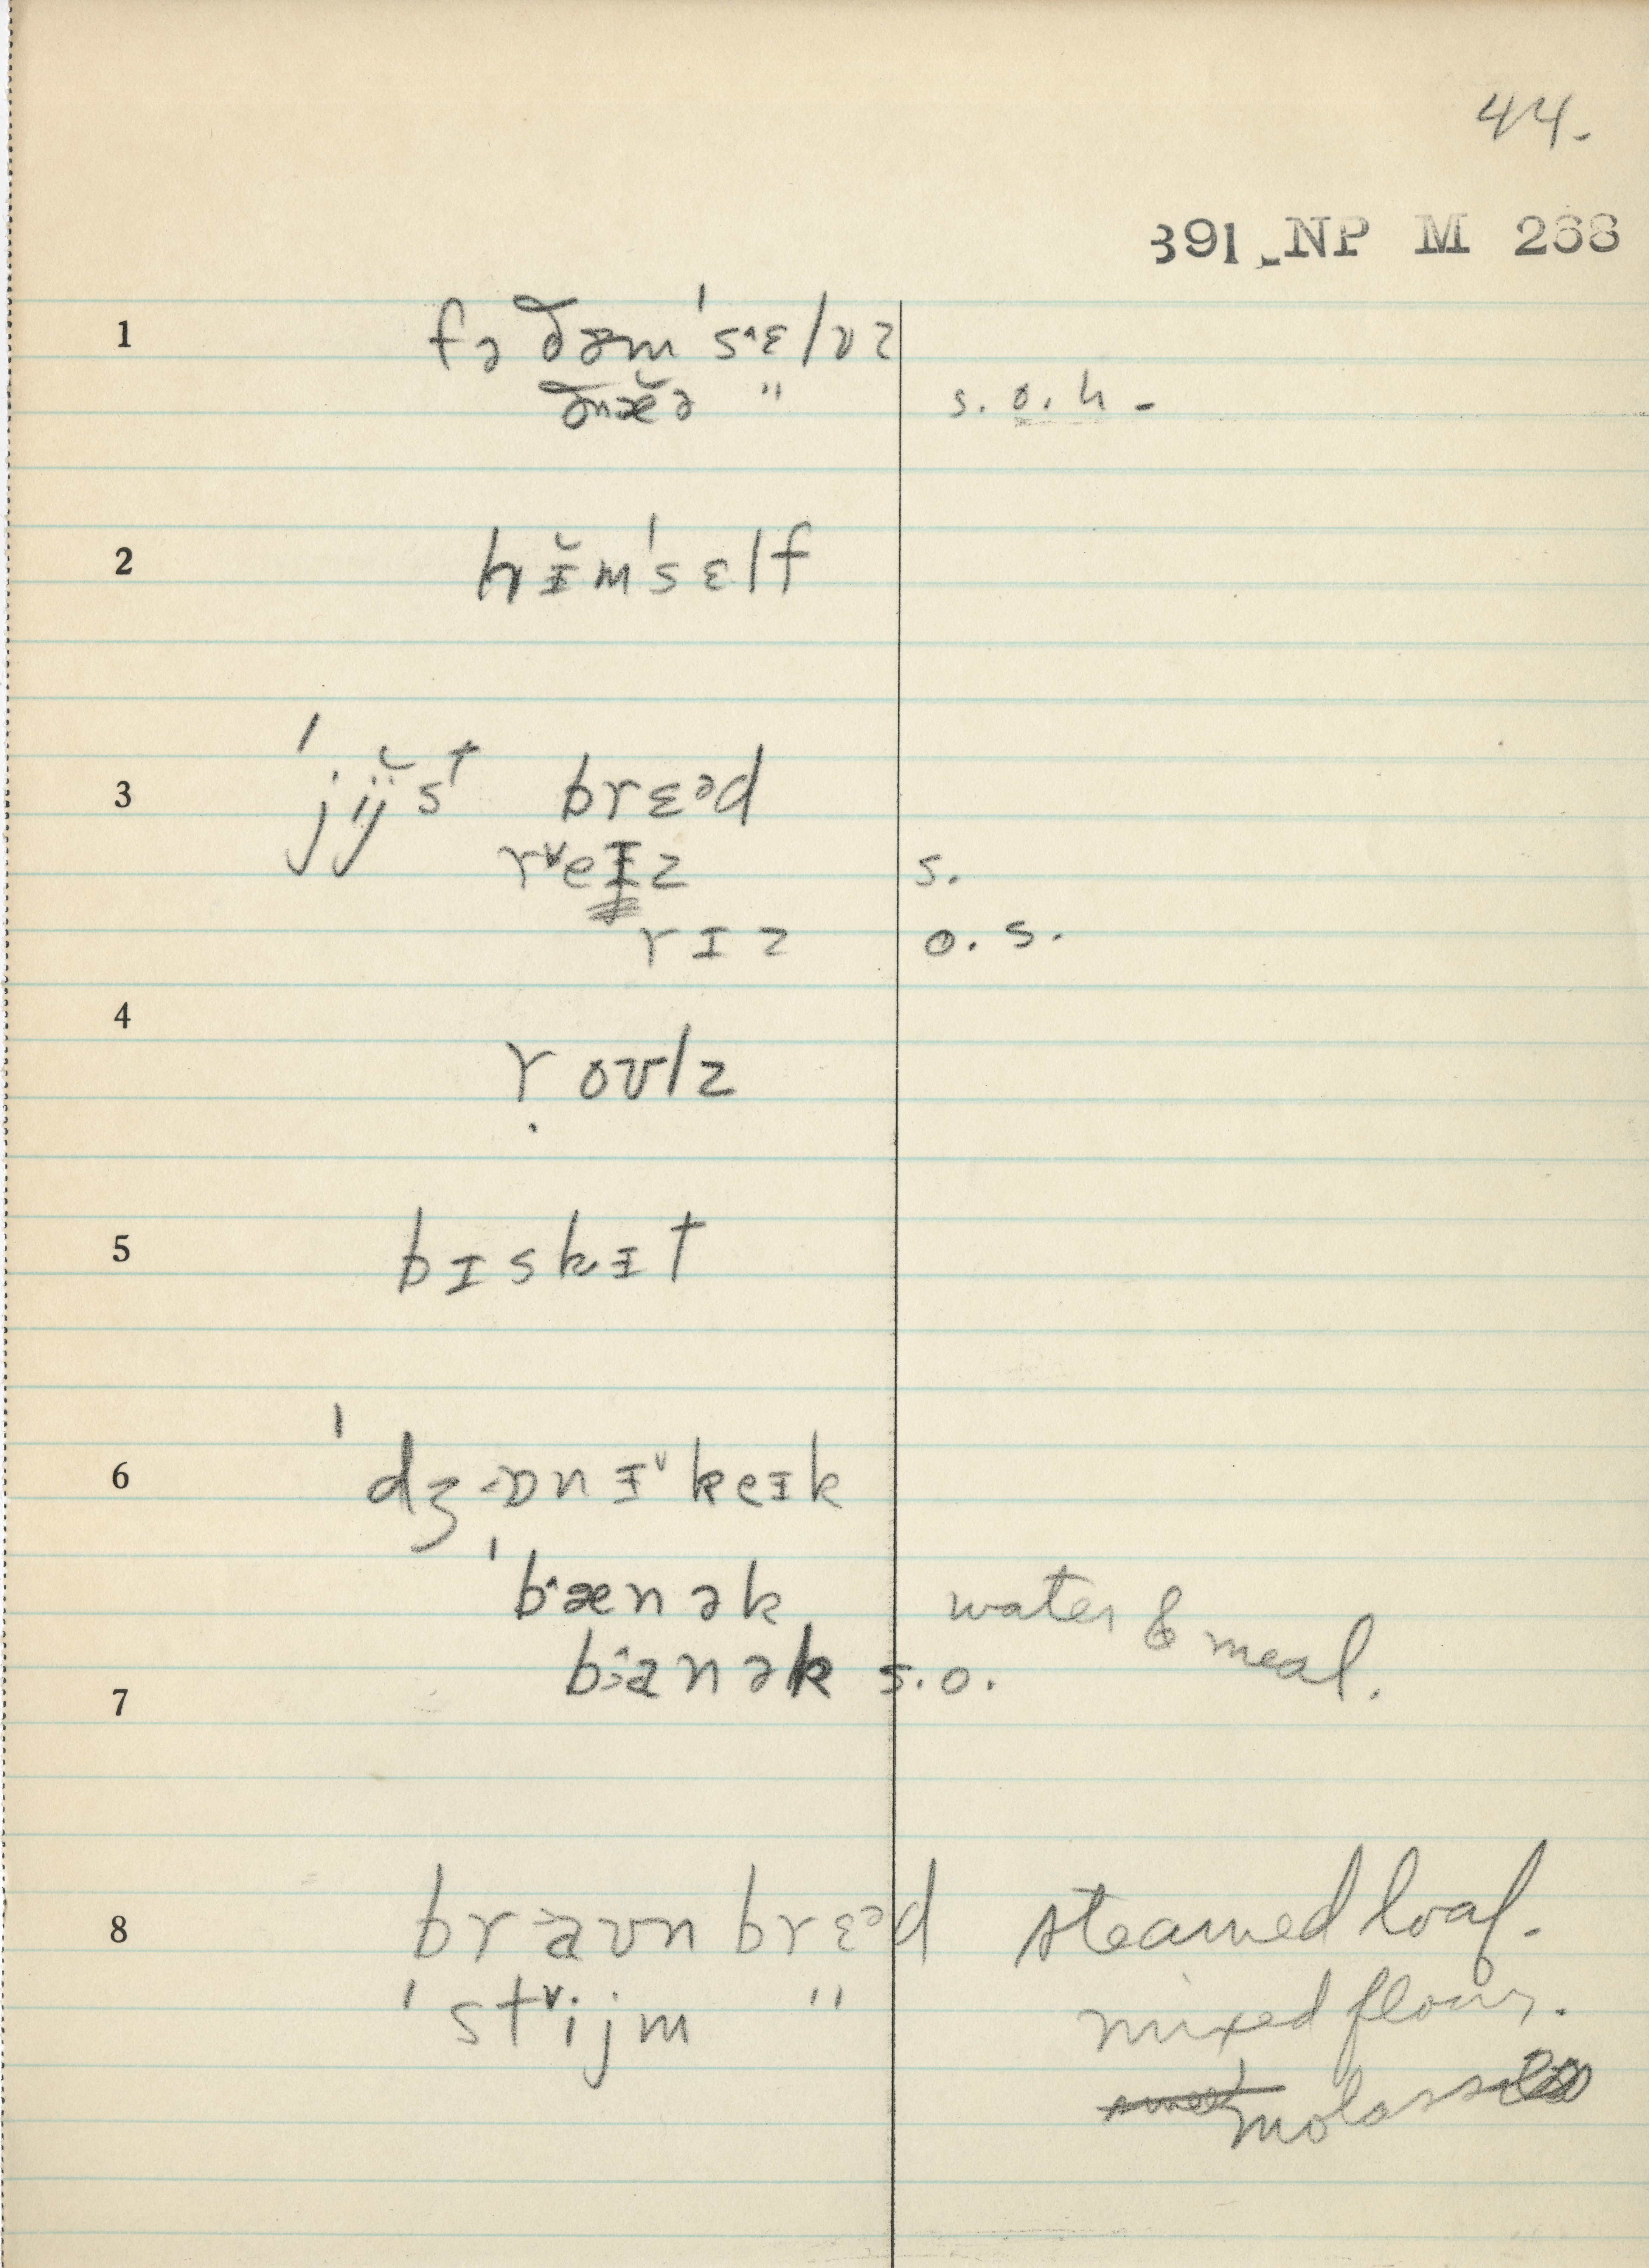 44.
391 NP M 268
1 fə ðəm ˈsˑɛlvz
ðæ̆ə " s. o. h -
2 hɪ̆mˈsɛlf
3 ˈjij̆st brɛᵊd
rˇeɪz s.
rɪz o. s.
4 ṛoʊlz
5 bɪskɪt
6 ˈdʒɒnɪˇkeɪk
ˈbˑænək water & meal.
7 bˑanək s.o.
8 braʊn brɛᵊd steamed loaf.
ˈstˇijm " mixed flour.
molasses